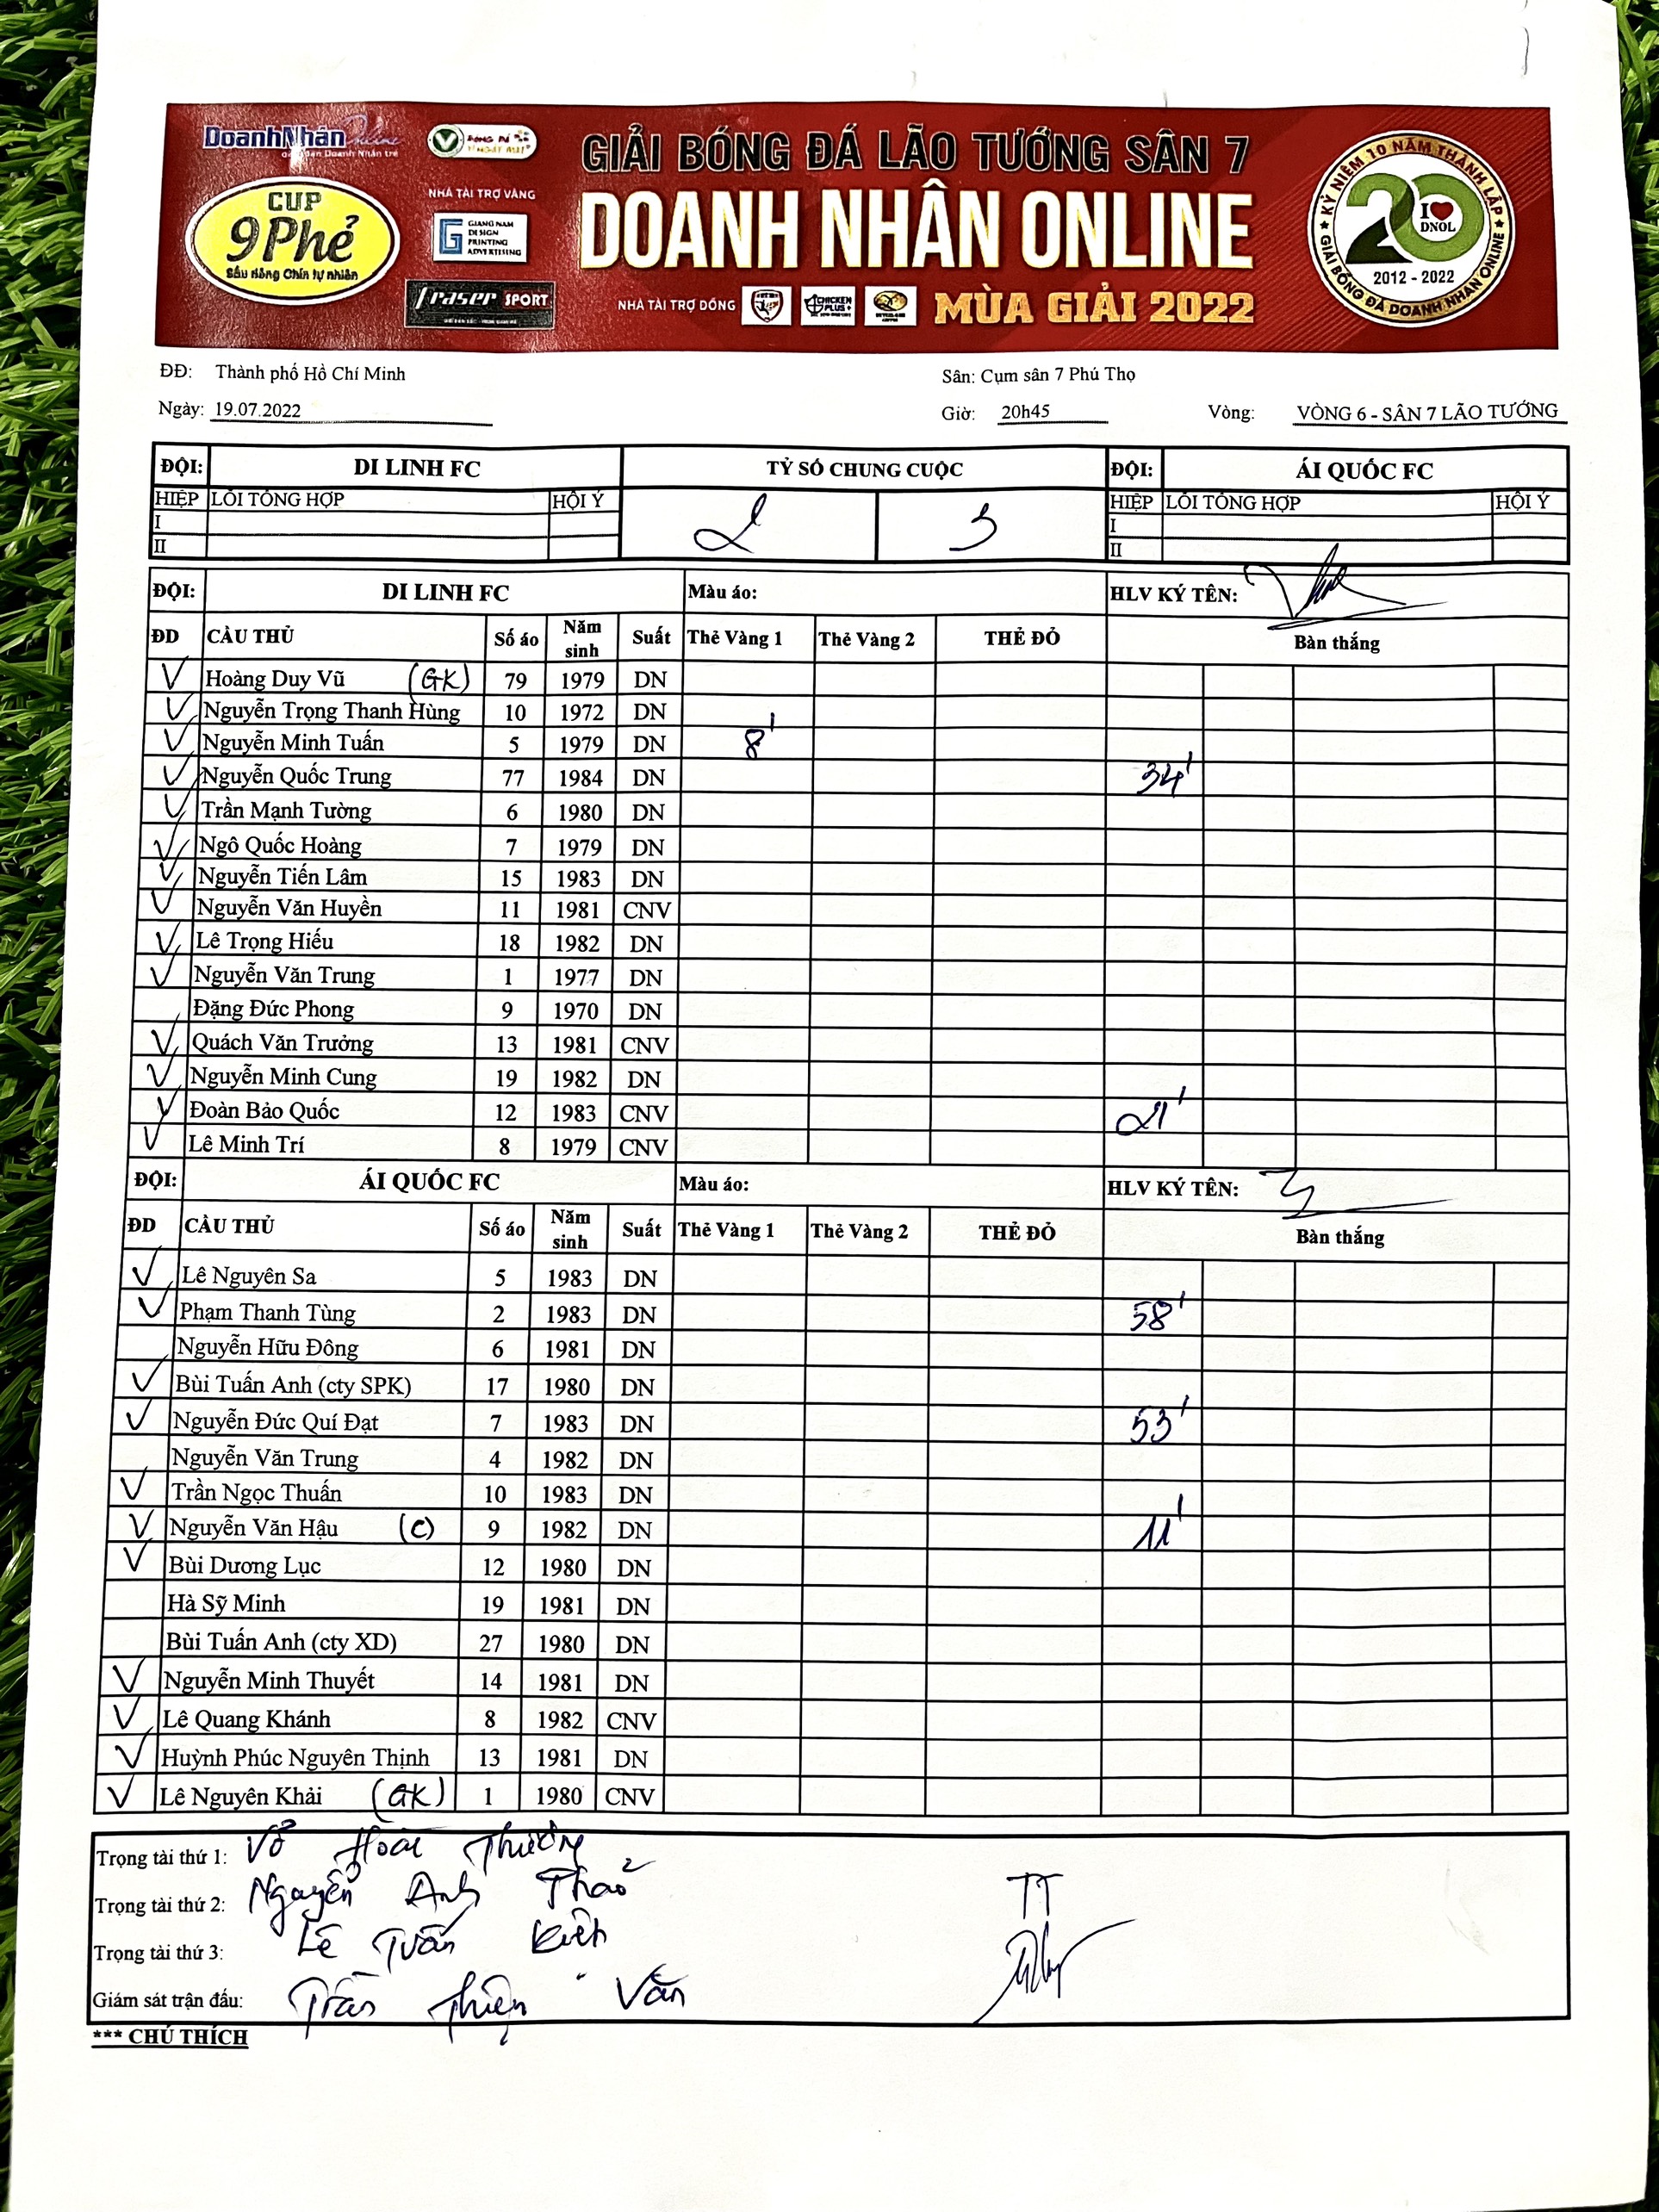 DoanhNhân Online
diễn đàn Doanh Nhân trẻ
CUP
9Phẻ
Sầu Riêng Chín tự nhiên
NHÀ TÀI TRỢ VÀNG
GIANG NAM
DESIGN
PRINTING
ADVERTISING
fraser SPORT
GIẢI BÓNG ĐÁ LÃO TƯỚNG SÂN 7
DOANH NHÂN ONLINE
NHÀ TÀI TRỢ ĐỒNG
CHICKEN PLUS+
MÙA GIẢI 2022
KỶ NIỆM 10 NĂM THÀNH LẬP
20
I ❤ DNOL
2012 - 2022
GIẢI BÓNG ĐÁ DOANH NHÂN ONLINE
ĐĐ: Thành phố Hồ Chí Minh Sân: Cụm sân 7 Phú Thọ
Ngày: 19.07.2022 Giờ: 20h45 Vòng: VÒNG 6 - SÂN 7 LÃO TƯỚNG
ĐỘI: DI LINH FC TỶ SỐ CHUNG CUỘC ĐỘI: ÁI QUỐC FC
HIỆP LỖI TỔNG HỢP HỘI Ý 2 3 HIỆP LỖI TỔNG HỢP HỘI Ý
I I
II II
ĐỘI: DI LINH FC Màu áo: HLV KÝ TÊN:
ĐD CẦU THỦ Số áo Năm sinh Suất Thẻ Vàng 1 Thẻ Vàng 2 THẺ ĐỎ Bàn thắng
V Hoàng Duy Vũ (GK) 79 1979 DN
V Nguyễn Trọng Thanh Hùng 10 1972 DN
V Nguyễn Minh Tuấn 5 1979 DN 8'
V Nguyễn Quốc Trung 77 1984 DN 34'
V Trần Mạnh Tường 6 1980 DN
V Ngô Quốc Hoàng 7 1979 DN
V Nguyễn Tiến Lâm 15 1983 DN
V Nguyễn Văn Huyền 11 1981 CNV
V Lê Trọng Hiếu 18 1982 DN
V Nguyễn Văn Trung 1 1977 DN
Đặng Đức Phong 9 1970 DN
V Quách Văn Trưởng 13 1981 CNV
V Nguyễn Minh Cung 19 1982 DN
V Đoàn Bảo Quốc 12 1983 CNV 21'
V Lê Minh Trí 8 1979 CNV
ĐỘI: ÁI QUỐC FC Màu áo: HLV KÝ TÊN:
ĐD CẦU THỦ Số áo Năm sinh Suất Thẻ Vàng 1 Thẻ Vàng 2 THẺ ĐỎ Bàn thắng
V Lê Nguyên Sa 5 1983 DN
V Phạm Thanh Tùng 2 1983 DN 58'
Nguyễn Hữu Đông 6 1981 DN
V Bùi Tuấn Anh (cty SPK) 17 1980 DN
V Nguyễn Đức Quí Đạt 7 1983 DN 53'
Nguyễn Văn Trung 4 1982 DN
V Trần Ngọc Thuấn 10 1983 DN
V Nguyễn Văn Hậu (C) 9 1982 DN 11'
V Bùi Dương Lục 12 1980 DN
Hà Sỹ Minh 19 1981 DN
Bùi Tuấn Anh (cty XD) 27 1980 DN
V Nguyễn Minh Thuyết 14 1981 DN
V Lê Quang Khánh 8 1982 CNV
V Huỳnh Phúc Nguyên Thịnh 13 1981 DN
V Lê Nguyên Khải (GK) 1 1980 CNV
Trọng tài thứ 1: Võ Hoài Thương
Trọng tài thứ 2: Nguyễn Anh Thảo TT
Trọng tài thứ 3: Lê Tuấn Kiệt
Giám sát trận đấu: Trần Thiện Văn
*** CHÚ THÍCH